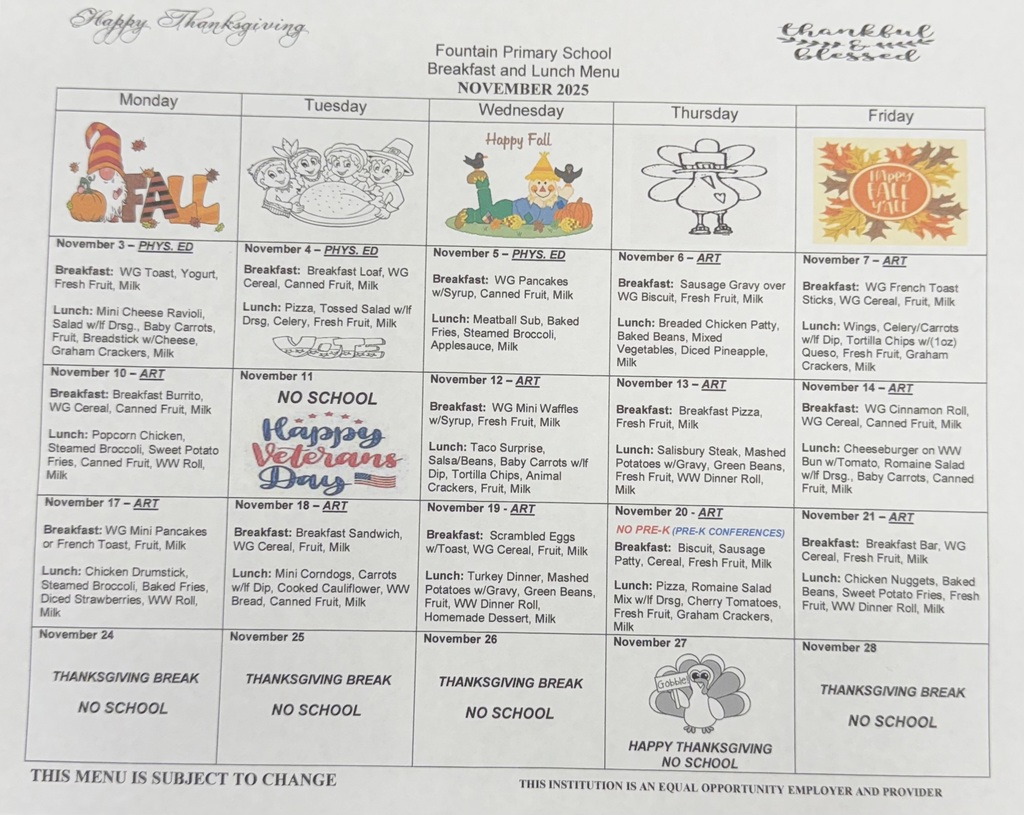 Happy Thanksgiving
thankful
&
blessed
Fountain Primary School
Breakfast and Lunch Menu
NOVEMBER 2025
Monday
Tuesday
Wednesday
Thursday
Friday
FALL
Happy Fall
Happy
FALL
Y'ALL
November 3 – PHYS. ED
Breakfast: WG Toast, Yogurt,
Fresh Fruit, Milk
Lunch: Mini Cheese Ravioli,
Salad w/lf Drsg., Baby Carrots,
Fruit, Breadstick w/Cheese,
Graham Crackers, Milk
November 4 – PHYS. ED
Breakfast: Breakfast Loaf, WG
Cereal, Canned Fruit, Milk
Lunch: Pizza, Tossed Salad w/lf
Drsg, Celery, Fresh Fruit, Milk
VOTE
November 5 – PHYS. ED
Breakfast: WG Pancakes
w/Syrup, Canned Fruit, Milk
Lunch: Meatball Sub, Baked
Fries, Steamed Broccoli,
Applesauce, Milk
November 6 – ART
Breakfast: Sausage Gravy over
WG Biscuit, Fresh Fruit, Milk
Lunch: Breaded Chicken Patty,
Baked Beans, Mixed
Vegetables, Diced Pineapple,
Milk
November 7 – ART
Breakfast: WG French Toast
Sticks, WG Cereal, Fruit, Milk
Lunch: Wings, Celery/Carrots
w/lf Dip, Tortilla Chips w/(1oz)
Queso, Fresh Fruit, Graham
Crackers, Milk
November 10 – ART
Breakfast: Breakfast Burrito,
WG Cereal, Canned Fruit, Milk
Lunch: Popcorn Chicken,
Steamed Broccoli, Sweet Potato
Fries, Canned Fruit, WW Roll,
Milk
November 11
NO SCHOOL
Happy
Veterans
Day
November 12 – ART
Breakfast: WG Mini Waffles
w/Syrup, Fresh Fruit, Milk
Lunch: Taco Surprise,
Salsa/Beans, Baby Carrots w/lf
Dip, Tortilla Chips, Animal
Crackers, Fruit, Milk
November 13 – ART
Breakfast: Breakfast Pizza,
Fresh Fruit, Milk
Lunch: Salisbury Steak, Mashed
Potatoes w/Gravy, Green Beans,
Fresh Fruit, WW Dinner Roll,
Milk
November 14 – ART
Breakfast: WG Cinnamon Roll,
WG Cereal, Canned Fruit, Milk
Lunch: Cheeseburger on WW
Bun w/Tomato, Romaine Salad
w/lf Drsg., Baby Carrots, Canned
Fruit, Milk
November 17 – ART
Breakfast: WG Mini Pancakes
or French Toast, Fruit, Milk
Lunch: Chicken Drumstick,
Steamed Broccoli, Baked Fries,
Diced Strawberries, WW Roll,
Milk
November 18 – ART
Breakfast: Breakfast Sandwich,
WG Cereal, Fruit, Milk
Lunch: Mini Corndogs, Carrots
w/lf Dip, Cooked Cauliflower, WW
Bread, Canned Fruit, Milk
November 19 - ART
Breakfast: Scrambled Eggs
w/Toast, WG Cereal, Fruit, Milk
Lunch: Turkey Dinner, Mashed
Potatoes w/Gravy, Green Beans,
Fruit, WW Dinner Roll,
Homemade Dessert, Milk
November 20 - ART
NO PRE-K (PRE-K CONFERENCES)
Breakfast: Biscuit, Sausage
Patty, Cereal, Fresh Fruit, Milk
Lunch: Pizza, Romaine Salad
Mix w/lf Drsg, Cherry Tomatoes,
Fresh Fruit, Graham Crackers,
Milk
November 21 – ART
Breakfast: Breakfast Bar, WG
Cereal, Fresh Fruit, Milk
Lunch: Chicken Nuggets, Baked
Beans, Sweet Potato Fries, Fresh
Fruit, WW Dinner Roll, Milk
November 24
THANKSGIVING BREAK
NO SCHOOL
November 25
THANKSGIVING BREAK
NO SCHOOL
November 26
THANKSGIVING BREAK
NO SCHOOL
November 27
Gobble!
HAPPY THANKSGIVING
NO SCHOOL
November 28
THANKSGIVING BREAK
NO SCHOOL
THIS MENU IS SUBJECT TO CHANGE
THIS INSTITUTION IS AN EQUAL OPPORTUNITY EMPLOYER AND PROVIDER